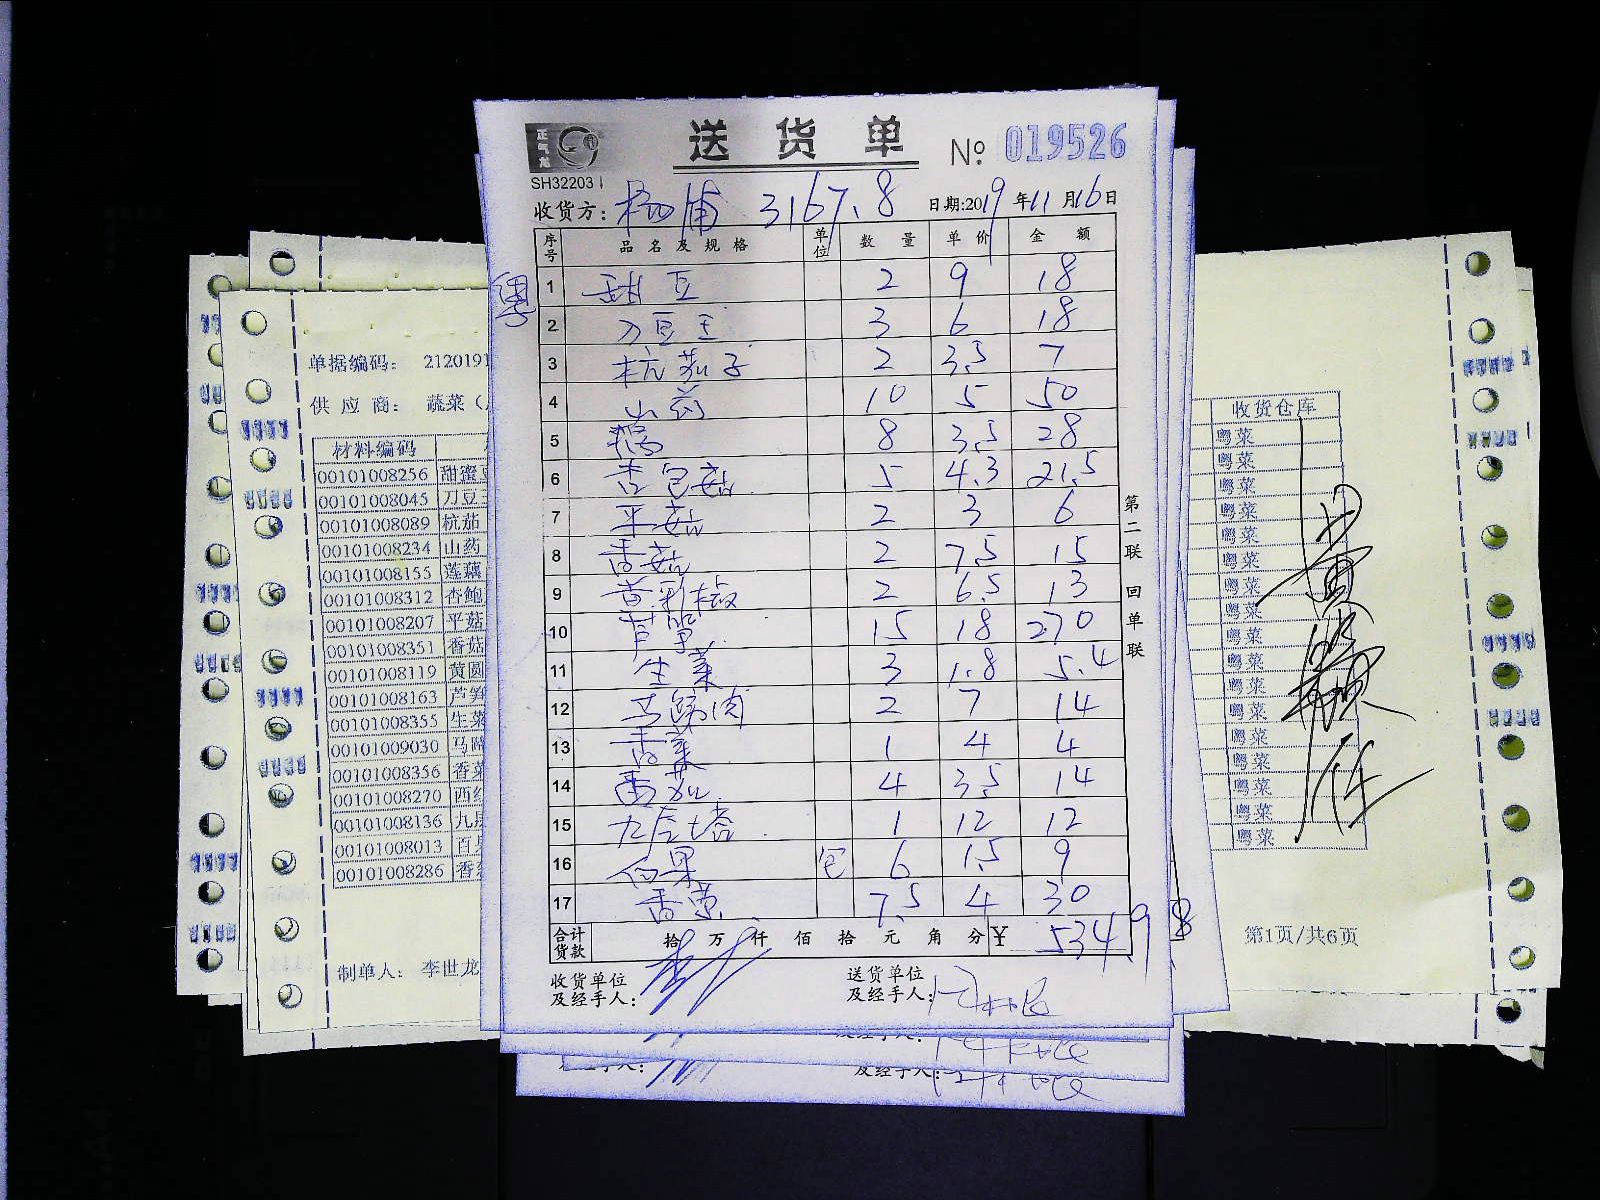 正气龙
送货单 № 019526
SH32203
收货方: 杨浦 3167.8 日期:2019年11月16日
粤
序号 品名及规格 单位 数量 单价 金额
1 甜豆 2 9 18
2 刀豆王 3 6 18
3 杭茄子 2 3.5 7
4 山药 10 5 50
5 藕 8 3.5 28
6 杏包菇 5 4.3 21.5
7 平菇 2 3 6
8 香菇 2 7.5 15
9 黄彩椒 2 6.5 13
10 芦笋 15 18 270
11 生菜 3 1.8 5.4
12 马蹄肉 2 7 14
13 香菜 1 4 4
14 番茄 4 3.5 14
15 九层塔 1 12 12
16 伯果 包 6 1.5 9
17 香菜 7.5 4 30
合计货款 拾万仟佰拾元角分 ¥ 534.9
第二联 回单联
收货单位及经手人:
送货单位及经手人:
及经手人:
单据编码: 2120191
供应商: 蔬菜（
材料编码
00101008256 甜蜜豆
00101008045 刀豆王
00101008089 杭茄
00101008234 山药
00101008155 莲藕
00101008312 杏鲍
00101008207 平菇
00101008351 香菇
00101008119 黄圆
00101008163 芦笋
00101008355 生菜
00101009030 马蹄
00101008356 香菜
00101008270 西红
00101008136 九层
00101008013 百
00101008286 香
制单人: 李世龙
收货仓库
粤菜
粤菜
粤菜
粤菜
粤菜
粤菜
粤菜
粤菜
粤菜
粤菜
粤菜
粤菜
粤菜
粤菜
粤菜
粤菜
粤菜
第1页/共6页